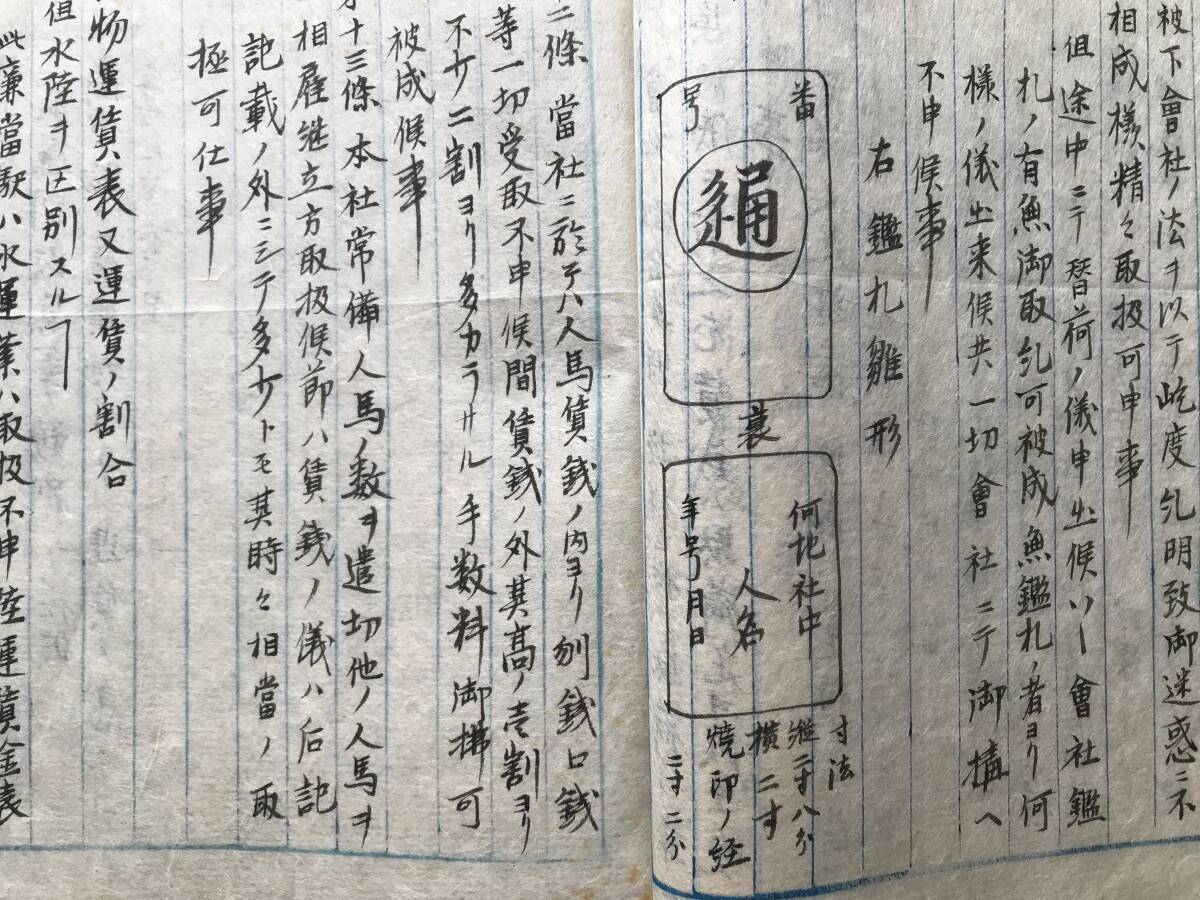 被下會社ノ法ヲ以テ屹度糺明致御迷惑ニ不
相成様精々取扱可申事
但途中ニテ替荷ノ儀申出候ハヽ會社鑑
札ノ有無御取糺可被成無鑑札ノ者ヨリ何
様ノ儀出来候共一切會社ニテ御構ヘ
不申候事
右鑑札雛形
番
号
通
裏
何地社中
人名
年号月日
寸法
縦二寸八分
横二寸
焼印ノ経
二寸二分
二條 當社ニ於テハ人馬賃銭ノ内ヨリ刎銭口銭
等一切受取不申候間賃銭ノ外其高ノ壱割ヨリ
不少二割ヨリ多カラサル手数料御拂可
被成候事
十三條 本社常備人馬ノ数ヲ遣切他ノ人馬ヲ
相雇継立方取扱候節ハ賃銭ノ儀ハ后記
記載ノ外ニシテ多少トモ其時々相當ノ取
極可仕事
物運賃表又運賃ノ割合
但水陸ヲ区別スルヿ
此廉當駅ハ水運業ハ取扱不申陸運賃金表